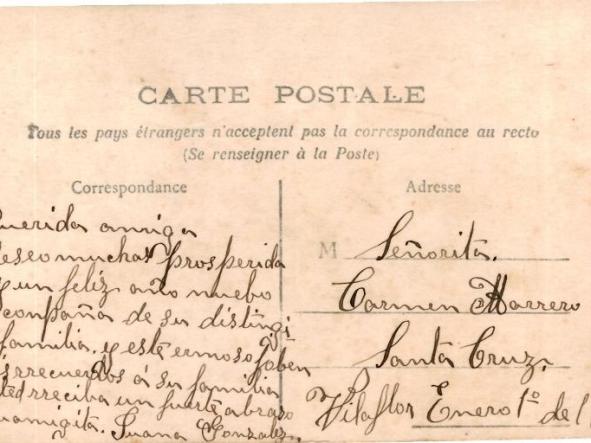 CARTE POSTALE
Tous les pays étrangers n'acceptent pas la correspondance au recto
(Se renseigner à la Poste)
Correspondance
Adresse
uerida amiga
deseo muchas prosperida
y un feliz año nuebo
conpaña de su distingi
familia. y este ermoso joben
is rrecuerdos á su familia
ted rreciba un fuerte abrazo
uamigita. Juana Gonzalez.
M Señorita.
Carmen Marrero
Santa Cruz.
Vilaflor Enero 1º de